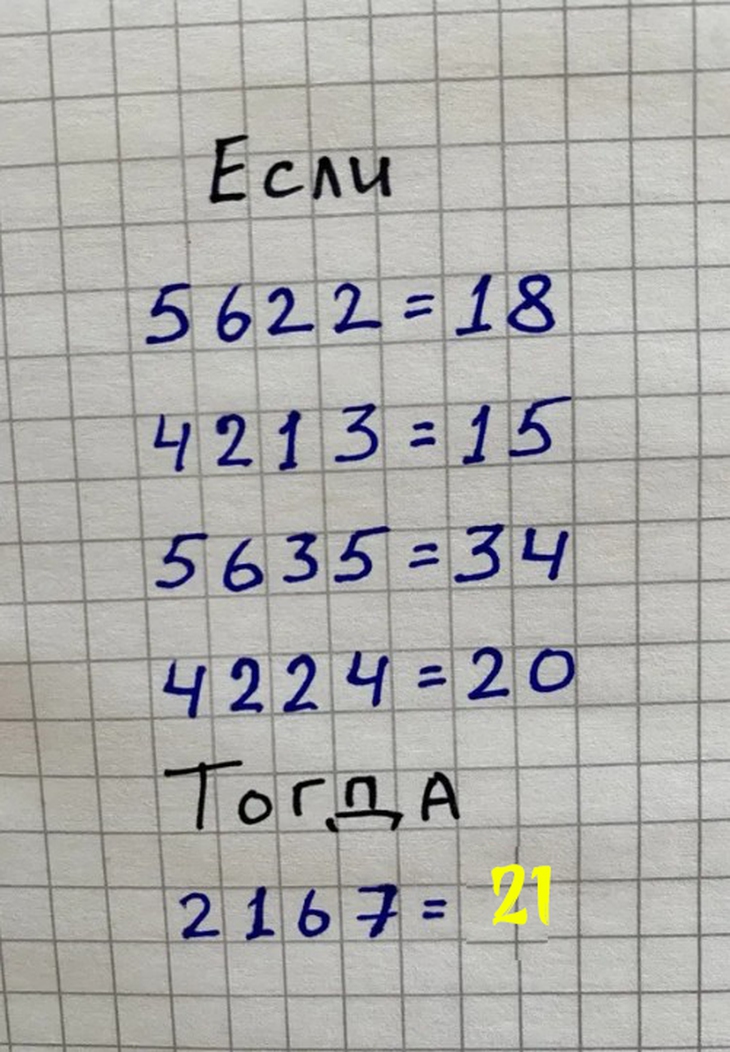 Если
5622=18
4213=15
5635=34
4224=20
Тогда
2167= 21